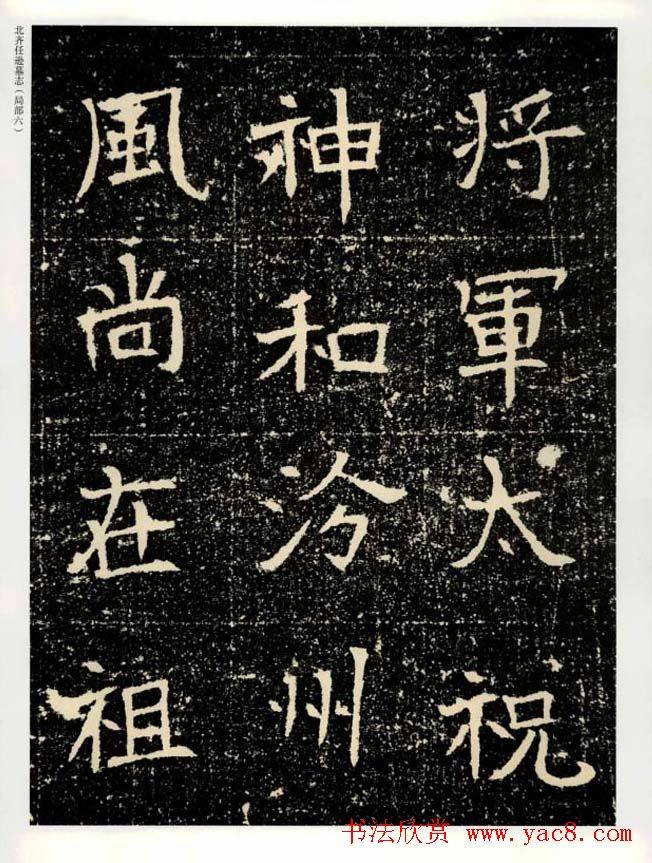 北齐任逊墓志（局部六）
将軍太祝
神和汾州
風尚在祖
书法欣赏 www.yac8.com